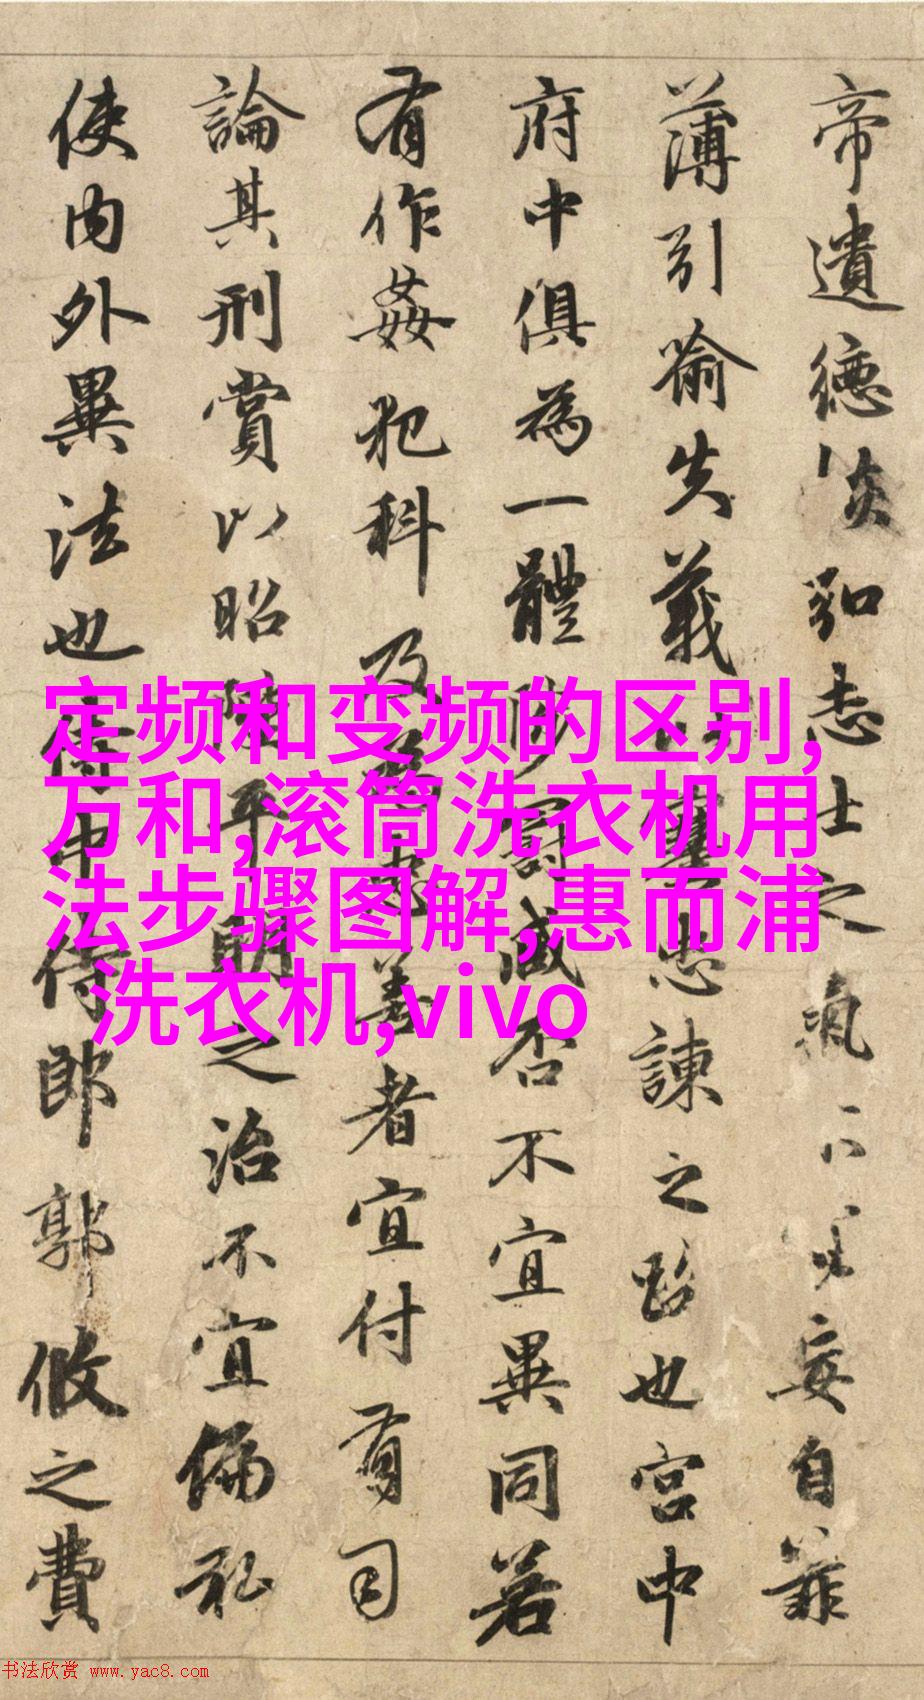 帝遺德恢弘志士之氣不宜妄自菲
薄引喻失義以塞忠諫之路也宮中
府中俱為一體陟罰臧否不宜異同若
有作姦犯科及為忠善者宜付有司
論其刑賞以昭陛平明之治不宜偏私
使內外異法也侍中侍郎郭攸之費
定频和变频的区别,
万和,滚筒洗衣机用
法步骤图解,惠而浦
洗衣机,vivo
书法欣赏 www.yac8.com